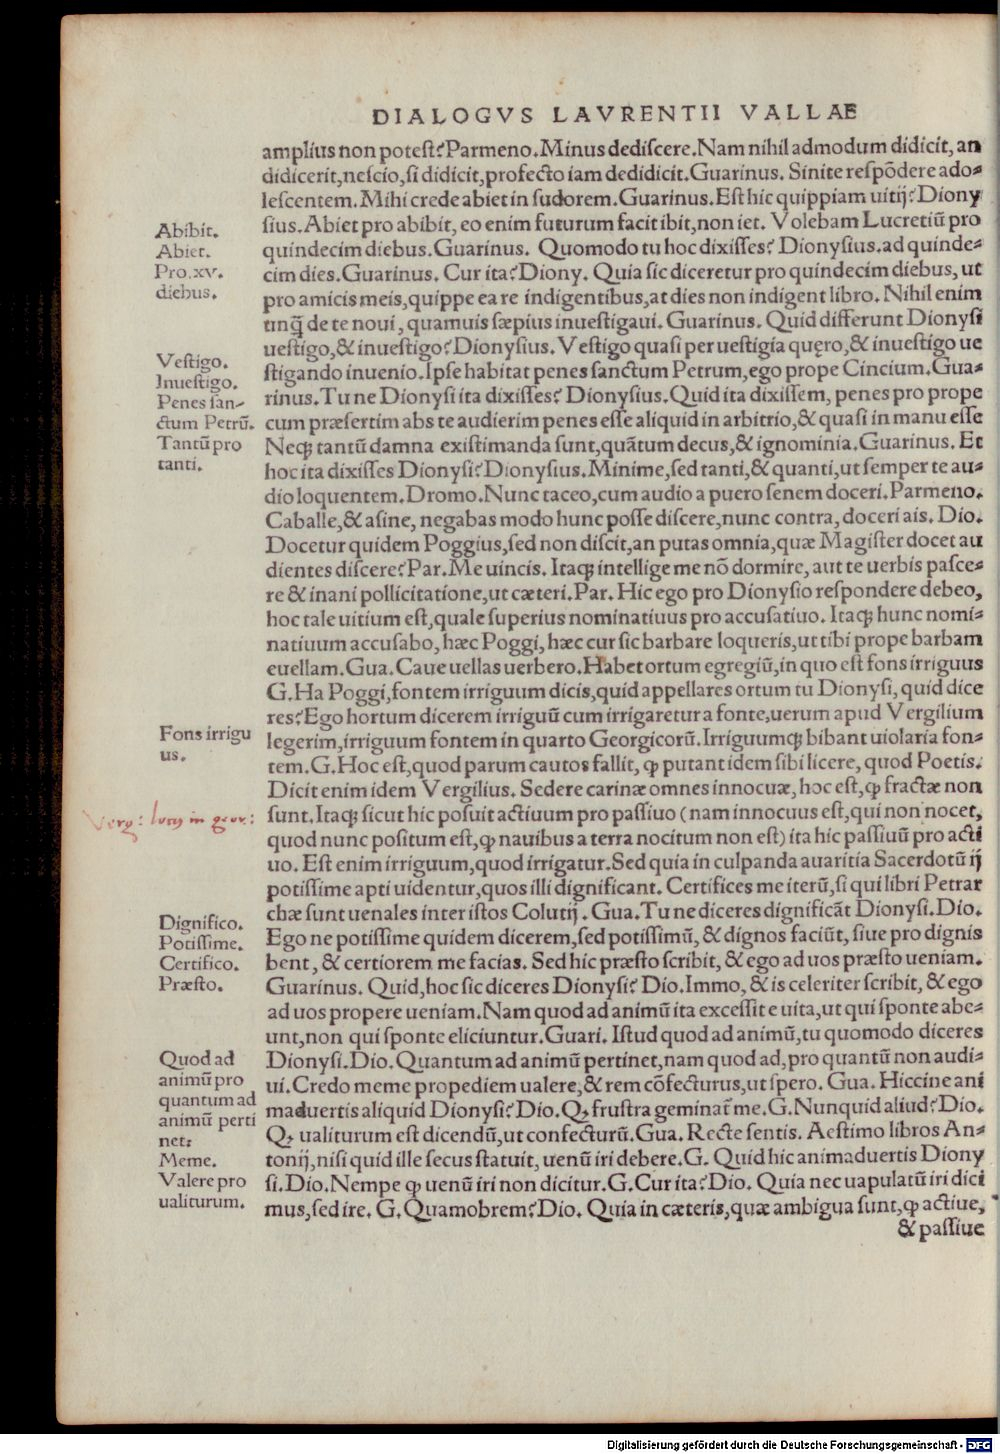 DIALOGVS LAVRENTII VALLAE
amplius non potest? Parmeno. Minus dediscere. Nam nihil admodum didicit, an
didicerit, nescio, si didicit, profecto iam dedidicit. Guarinus. Sinite respõdere ado⸗
lescentem. Mihi crede abiet in sudorem. Guarinus. Est hic quippiam uitij? Diony
sius. Abiet pro abibit, eo enim futurum facit ibit, non iet. Volebam Lucretiũ pro
quindecim diebus. Guarinus. Quomodo tu hoc dixisses? Dionysius. ad quinde⸗
cim dies. Guarinus. Cur ita? Diony. Quia sic diceretur pro quindecim diebus, ut
pro amicis meis, quippe ea re indigentibus, at dies non indigent libro. Nihil enim
unq̃ de te noui, quamuis sæpius inuestigaui. Guarinus. Quid differunt Dionysi
uestigo, & inuestigo? Dionysius. Vestigo quasi per uestigia quęro, & inuestigo ue
stigando inuenio. Ipse habitat penes sanctum Petrum, ego prope Cincium. Gua⸗
rinus. Tu ne Dionysi ita dixisses? Dionysius. Quid ita dixissem, penes pro prope
cum præsertim abs te audierim penes esse aliquid in arbitrio, & quasi in manu esse
Neq; tantũ damna existimanda sunt, quãtum decus, & ignominia. Guarinus. Et
hoc ita dixisses Dionysi? Dionysius. Minime, sed tanti, & quanti, ut semper te au⸗
dio loquentem. Dromo. Nunc taceo, cum audio a puero senem doceri. Parmeno.
Caballe, & asine, negabas modo hunc posse discere, nunc contra, doceri ais. Dio.
Docetur quidem Poggius, sed non discit, an putas omnia, quæ Magister docet au
dientes discere? Par. Me uincis. Itaq; intellige me nõ dormire, aut te uerbis pasce⸗
re & inani pollicitatione, ut cæteri. Par. Hic ego pro Dionysio respondere debeo,
hoc tale uitium est, quale superius nominatiuus pro accusatiuo. Itaq; hunc nomi⸗
natiuum accusabo, hæc Poggi, hæc cur sic barbare loqueris, ut tibi prope barbam
euellam. Gua. Caue uellas uerbero. Habet ortum egregiũ, in quo est fons irriguus
G. Ha Poggi, fontem irriguum dicis, quid appellares ortum tu Dionysi, quid dice
res? Ego hortum dicerem irriguũ cum irrigaretur a fonte, uerum apud Vergilium
legerim, irriguum fontem in quarto Georgicorũ. Irriguumq; bibant uiolaria fon⸗
tem. G. Hoc est, quod parum cautos fallit, ꝙ putant idem sibi licere, quod Poetis.
Dicit enim idem Vergilius. Sedere carinæ omnes innocuæ, hoc est, ꝙ fractæ non
sunt. Itaq; sicut hic posuit actiuum pro passiuo (nam innocuus est, qui non nocet,
quod nunc positum est, ꝙ nauibus a terra nocitum non est) ita hic passiuũ pro acti
uo. Est enim irriguum, quod irrigatur. Sed quia in culpanda auaritia Sacerdotũ ij
potissime apti uidentur, quos illi dignificant. Certifices me iterũ, si qui libri Petrar
chæ sunt uenales inter istos Colutij. Gua. Tu ne diceres dignificãt Dionysi. Dio.
Ego ne potissime quidem dicerem, sed potissimũ, & dignos faciũt, siue pro dignis
bent, & certiorem me facias. Sed hic præsto scribit, & ego ad uos præsto ueniam.
Guarinus. Quid, hoc sic diceres Dionysi? Dio. Immo, & is celeriter scribit, & ego
ad uos propere ueniam. Nam quod ad animũ ita excessit e uita, ut qui sponte abe⸗
unt, non qui sponte eliciuntur. Guari. Istud quod ad animũ, tu quomodo diceres
Dionysi. Dio. Quantum ad animũ pertinet, nam quod ad, pro quantũ non audi⸗
ui. Credo meme propediem ualere, & rem cõfecturus, ut spero. Gua. Hiccine ani
maduertis aliquid Dionysi? Dio. Q; frustra geminat̃ me. G. Nunquid aliud? Dio.
Q; ualiturum est dicendũ, ut confecturũ. Gua. Recte sentis. Aestimo libros An⸗
tonij, nisi quid ille secus statuit, uenũ iri debere. G. Quid hic animaduertis Diony
si. Dio. Nempe ꝙ uenũ iri non dicitur. G. Cur ita? Dio. Quia nec uapulatũ iri dici
mus, sed ire. G. Quamobrem? Dio. Quia in cæteris, quæ ambigua sunt, ꝙ actiue,
& passiue
Abibit.
Abiet.
Pro. xv.
diebus.
Vestigo.
Inuestigo.
Penes san⸗
ctum Petrũ.
Tantũ pro
tanti.
Fons irrigu
us.
Verg: locus in geor:
Dignifico.
Potissime.
Certifico.
Præsto.
Quod ad
animũ pro
quantum ad
animũ perti
net:
Meme.
Valere pro
ualiturum.
Digitalisierung gefördert durch die Deutsche Forschungsgemeinschaft - DFG